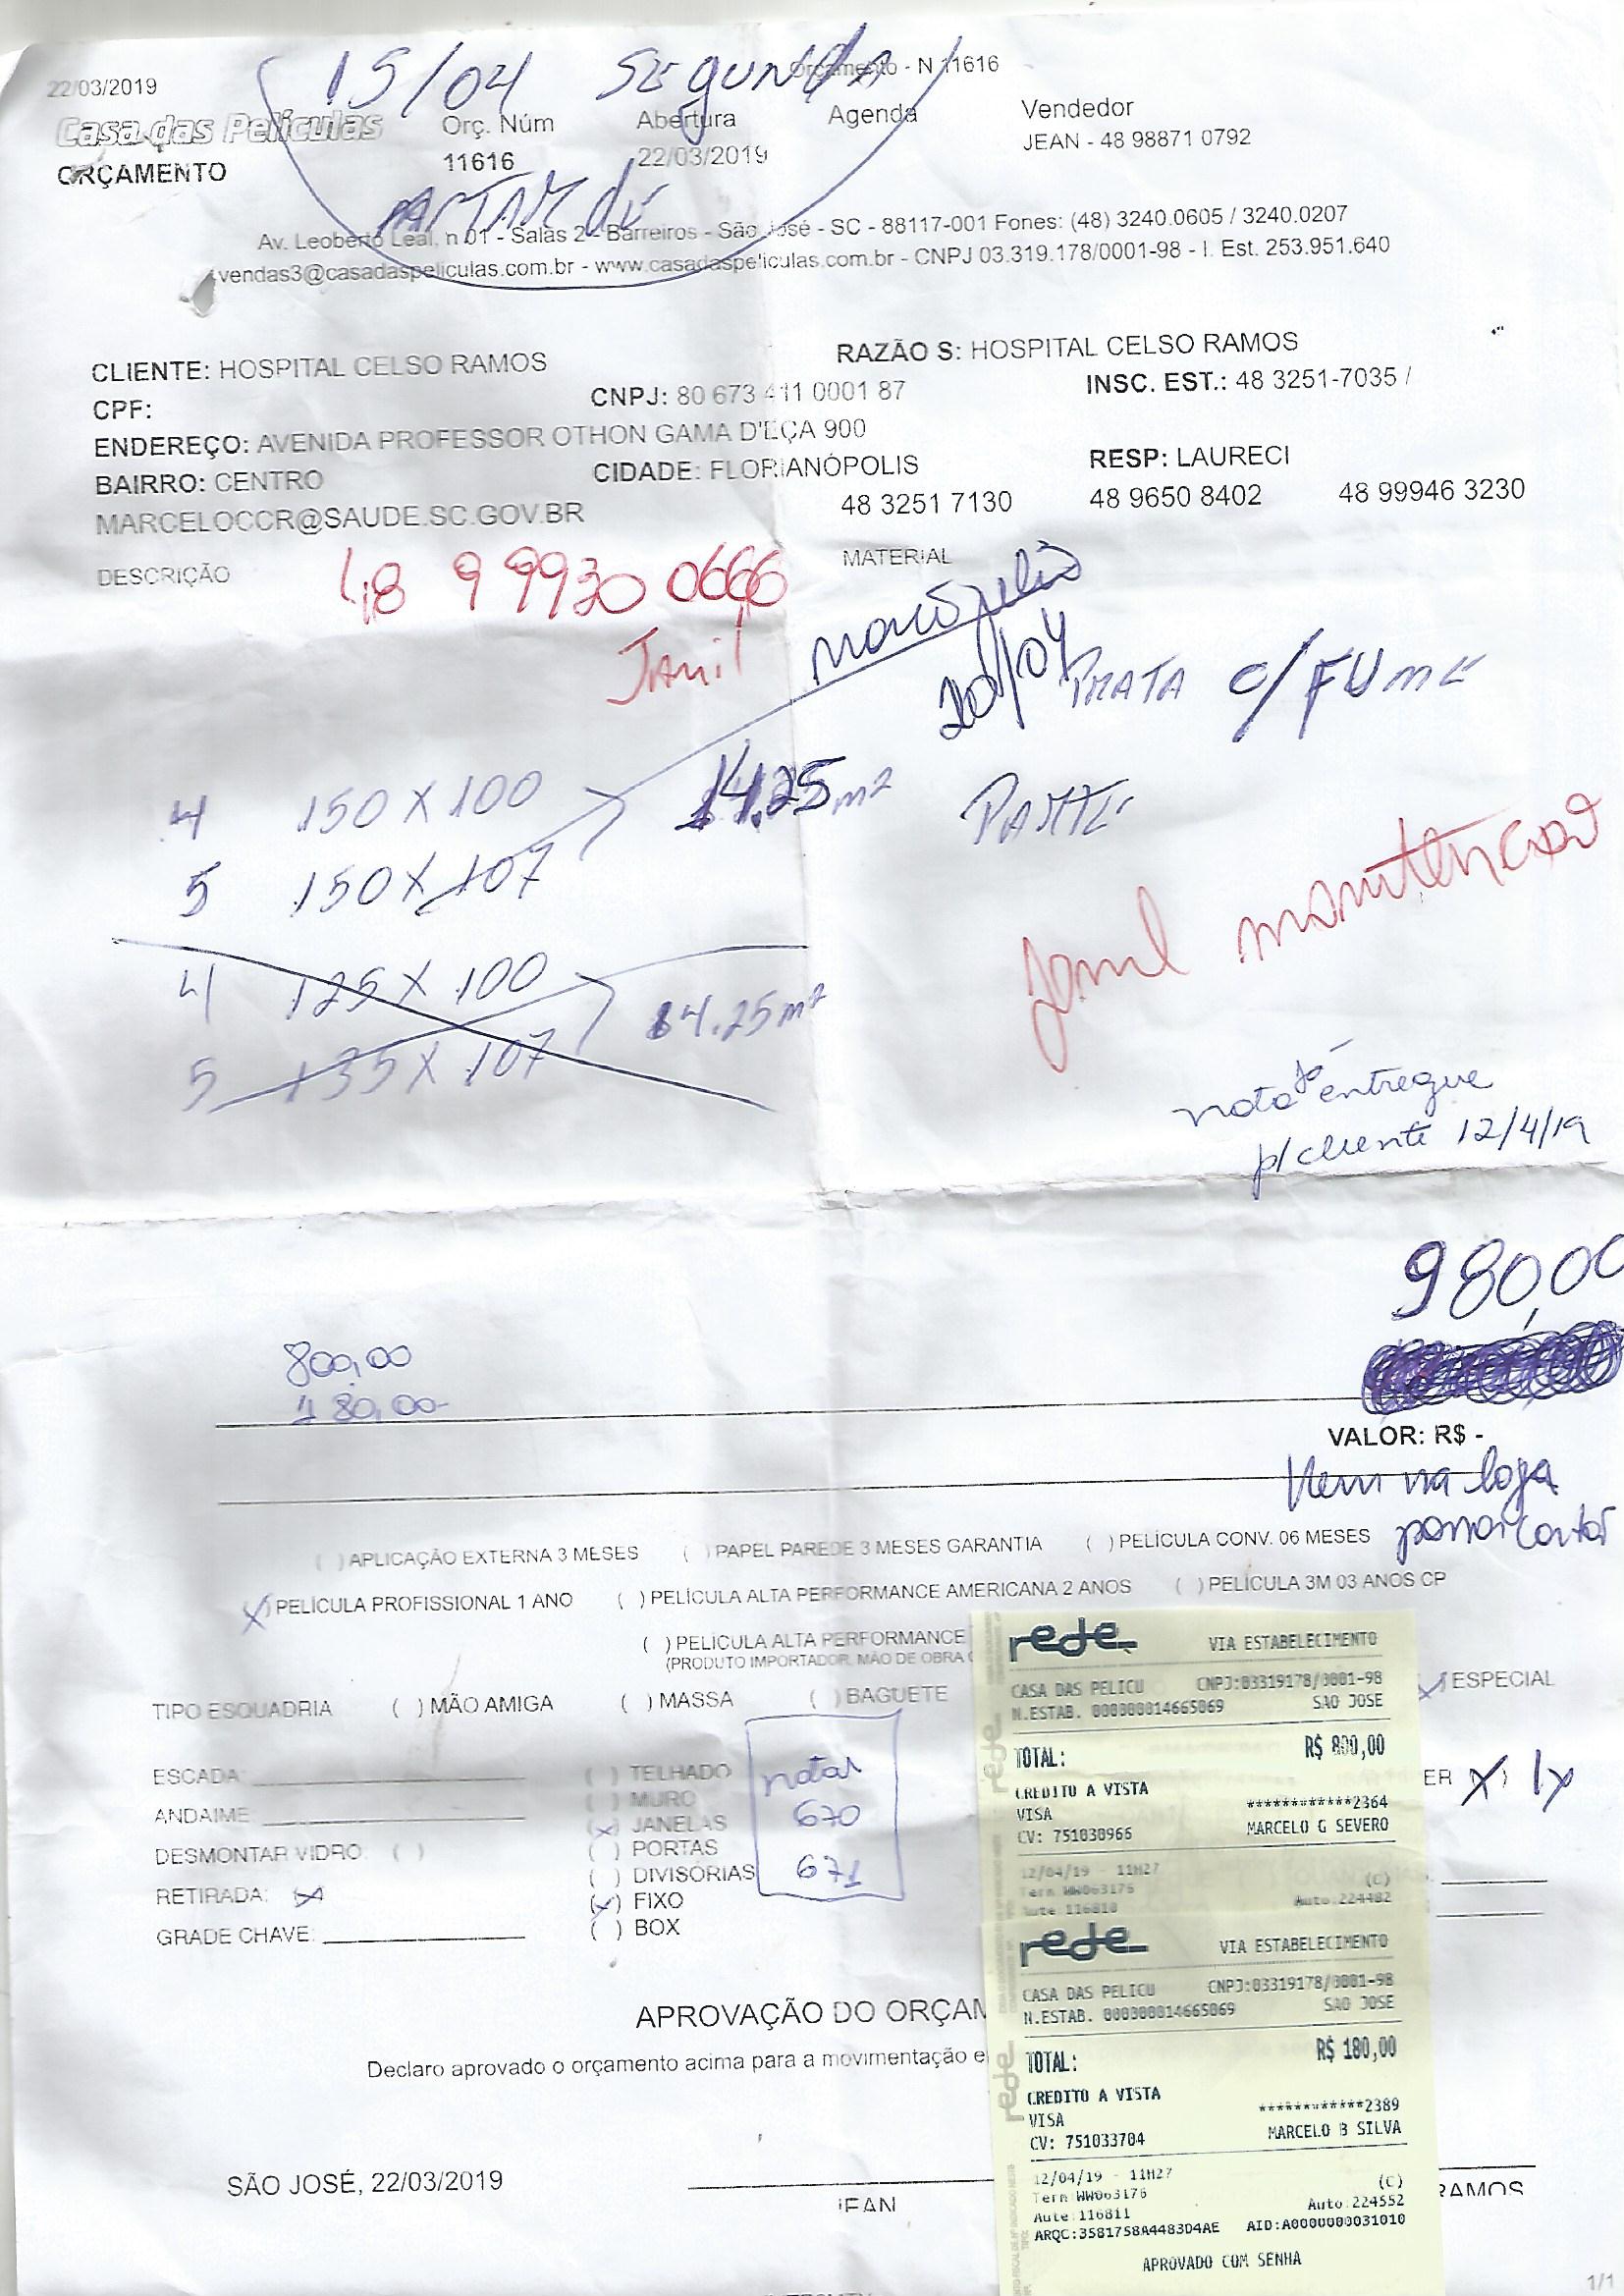 15/04 SEGUNDA
Orçamento - N 11616
22/03/2019
Casa das Películas
ORÇAMENTO
Orç. Núm
11616
Abertura
22/03/2019
Agenda
Vendedor
JEAN - 48 98871 0792
Av. Leoberto Leal, n 01 - Salas 2 - Barreiros - São José - SC - 88117-001 Fones: (48) 3240.0605 / 3240.0207
vendas3@casadaspeliculas.com.br - www.casadaspeliculas.com.br - CNPJ 03.319.178/0001-98 - I. Est. 253.951.640
CLIENTE: HOSPITAL CELSO RAMOS
RAZÃO S: HOSPITAL CELSO RAMOS
CPF:
CNPJ: 80 673 411 0001 87
INSC. EST.: 48 3251-7035 /
ENDEREÇO: AVENIDA PROFESSOR OTHON GAMA D'EÇA 900
BAIRRO: CENTRO
CIDADE: FLORIANÓPOLIS
RESP: LAURECI
MARCELOCCR@SAUDE.SC.GOV.BR
48 3251 7130
48 9650 8402
48 99946 3230
DESCRIÇÃO
MATERIAL
48 9 9930 0666
Jamil
20/04
PRATA C/ FUMÊ
4 150 X 100
14.25 m²
5 150 X 107
PARTE
Jamil manutencao
4 125 X 100
14.25 m²
5 135 X 107
nota já entregue
p/ cliente 12/4/19
980,00
800,00
180,00
VALOR: R$ -
Vem na loja
passar cartão
( ) APLICAÇÃO EXTERNA 3 MESES
( ) PAPEL PAREDE 3 MESES GARANTIA
( ) PELÍCULA CONV. 06 MESES
(X) PELÍCULA PROFISSIONAL 1 ANO
( ) PELÍCULA ALTA PERFORMANCE AMERICANA 2 ANOS
( ) PELÍCULA 3M 03 ANOS CP
( ) PELÍCULA ALTA PERFORMANCE
(PRODUTO IMPORTADOR, MÃO DE OBRA
TIPO ESQUADRIA
( ) MÃO AMIGA
( ) MASSA
( ) BAGUETE
ESPECIAL
ESCADA:
( ) TELHADO
ANDAIME:
( ) MURO
(X) JANELAS
DESMONTAR VIDRO: ( )
( ) PORTAS
( ) DIVISÓRIAS
RETIRADA: (X)
(X) FIXO
GRADE CHAVE:
( ) BOX
notas
670
671
ER (X) 1x
rede
VIA ESTABELECIMENTO
CASA DAS PELICU CNPJ:03319178/0001-98
N.ESTAB. 000000014665069 SAO JOSE
TOTAL: R$ 800,00
CREDITO A VISTA
VISA ************2364
CV: 751030966 MARCELO G SEVERO
12/04/19 - 11H27 (C)
Term WW063176 Auto:224482
Aute 116810
rede
VIA ESTABELECIMENTO
CASA DAS PELICU CNPJ:03319178/0001-98
N.ESTAB. 000000014665069 SAO JOSE
TOTAL: R$ 180,00
CREDITO A VISTA
VISA ************2389
CV: 751033704 MARCELO B SILVA
12/04/19 - 11H27 (C)
Term WW063176 Auto:224552
Aute:116811
ARQC:3581758A4483D4AE AID:A0000000031010
APROVADO COM SENHA
APROVAÇÃO DO ORÇAM
Declaro aprovado o orçamento acima para a movimentação e
SÃO JOSÉ, 22/03/2019
JEAN
RAMOS
1/1